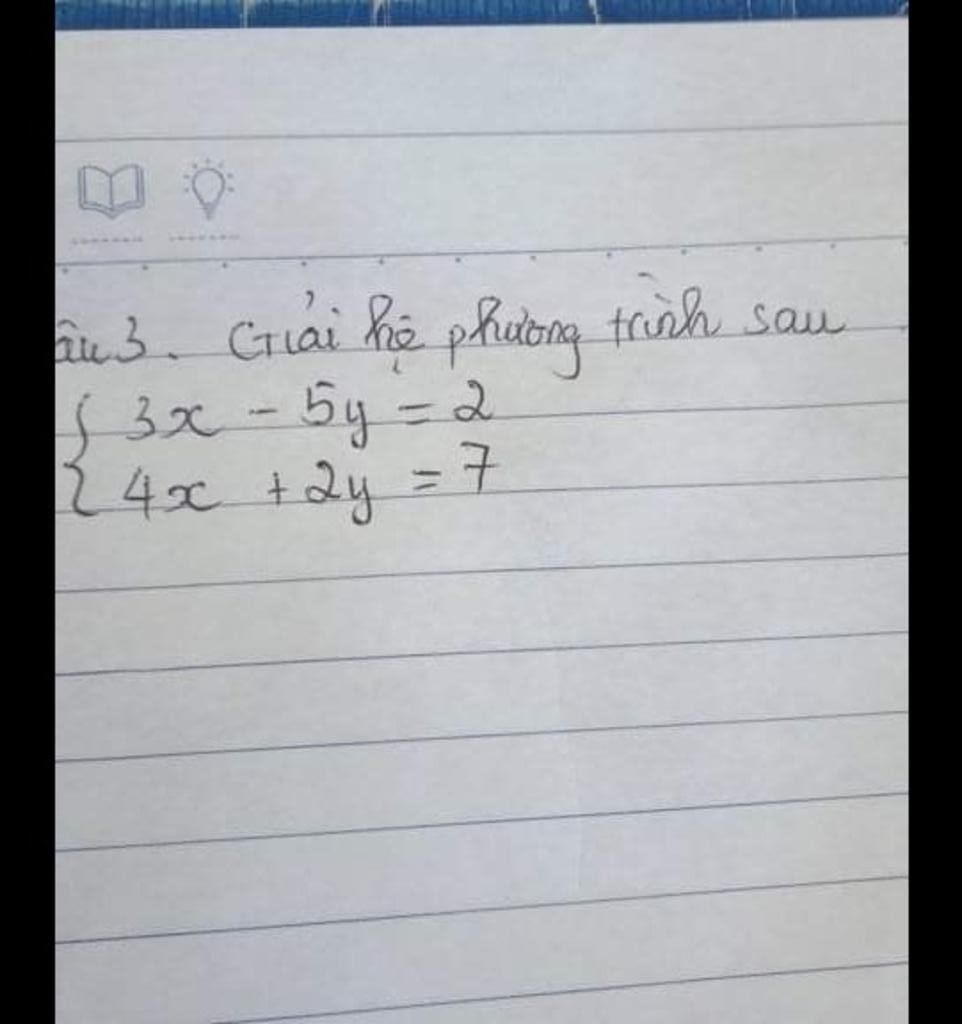 âu 3. Giải hệ phương trình sau
{ 3x - 5y = 2
4x + 2y = 7